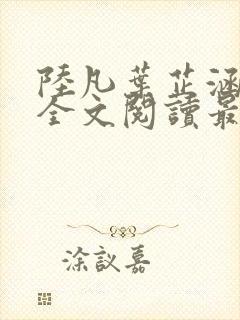 陸凡葉芷涵
全文閱讀最
涂議嘉